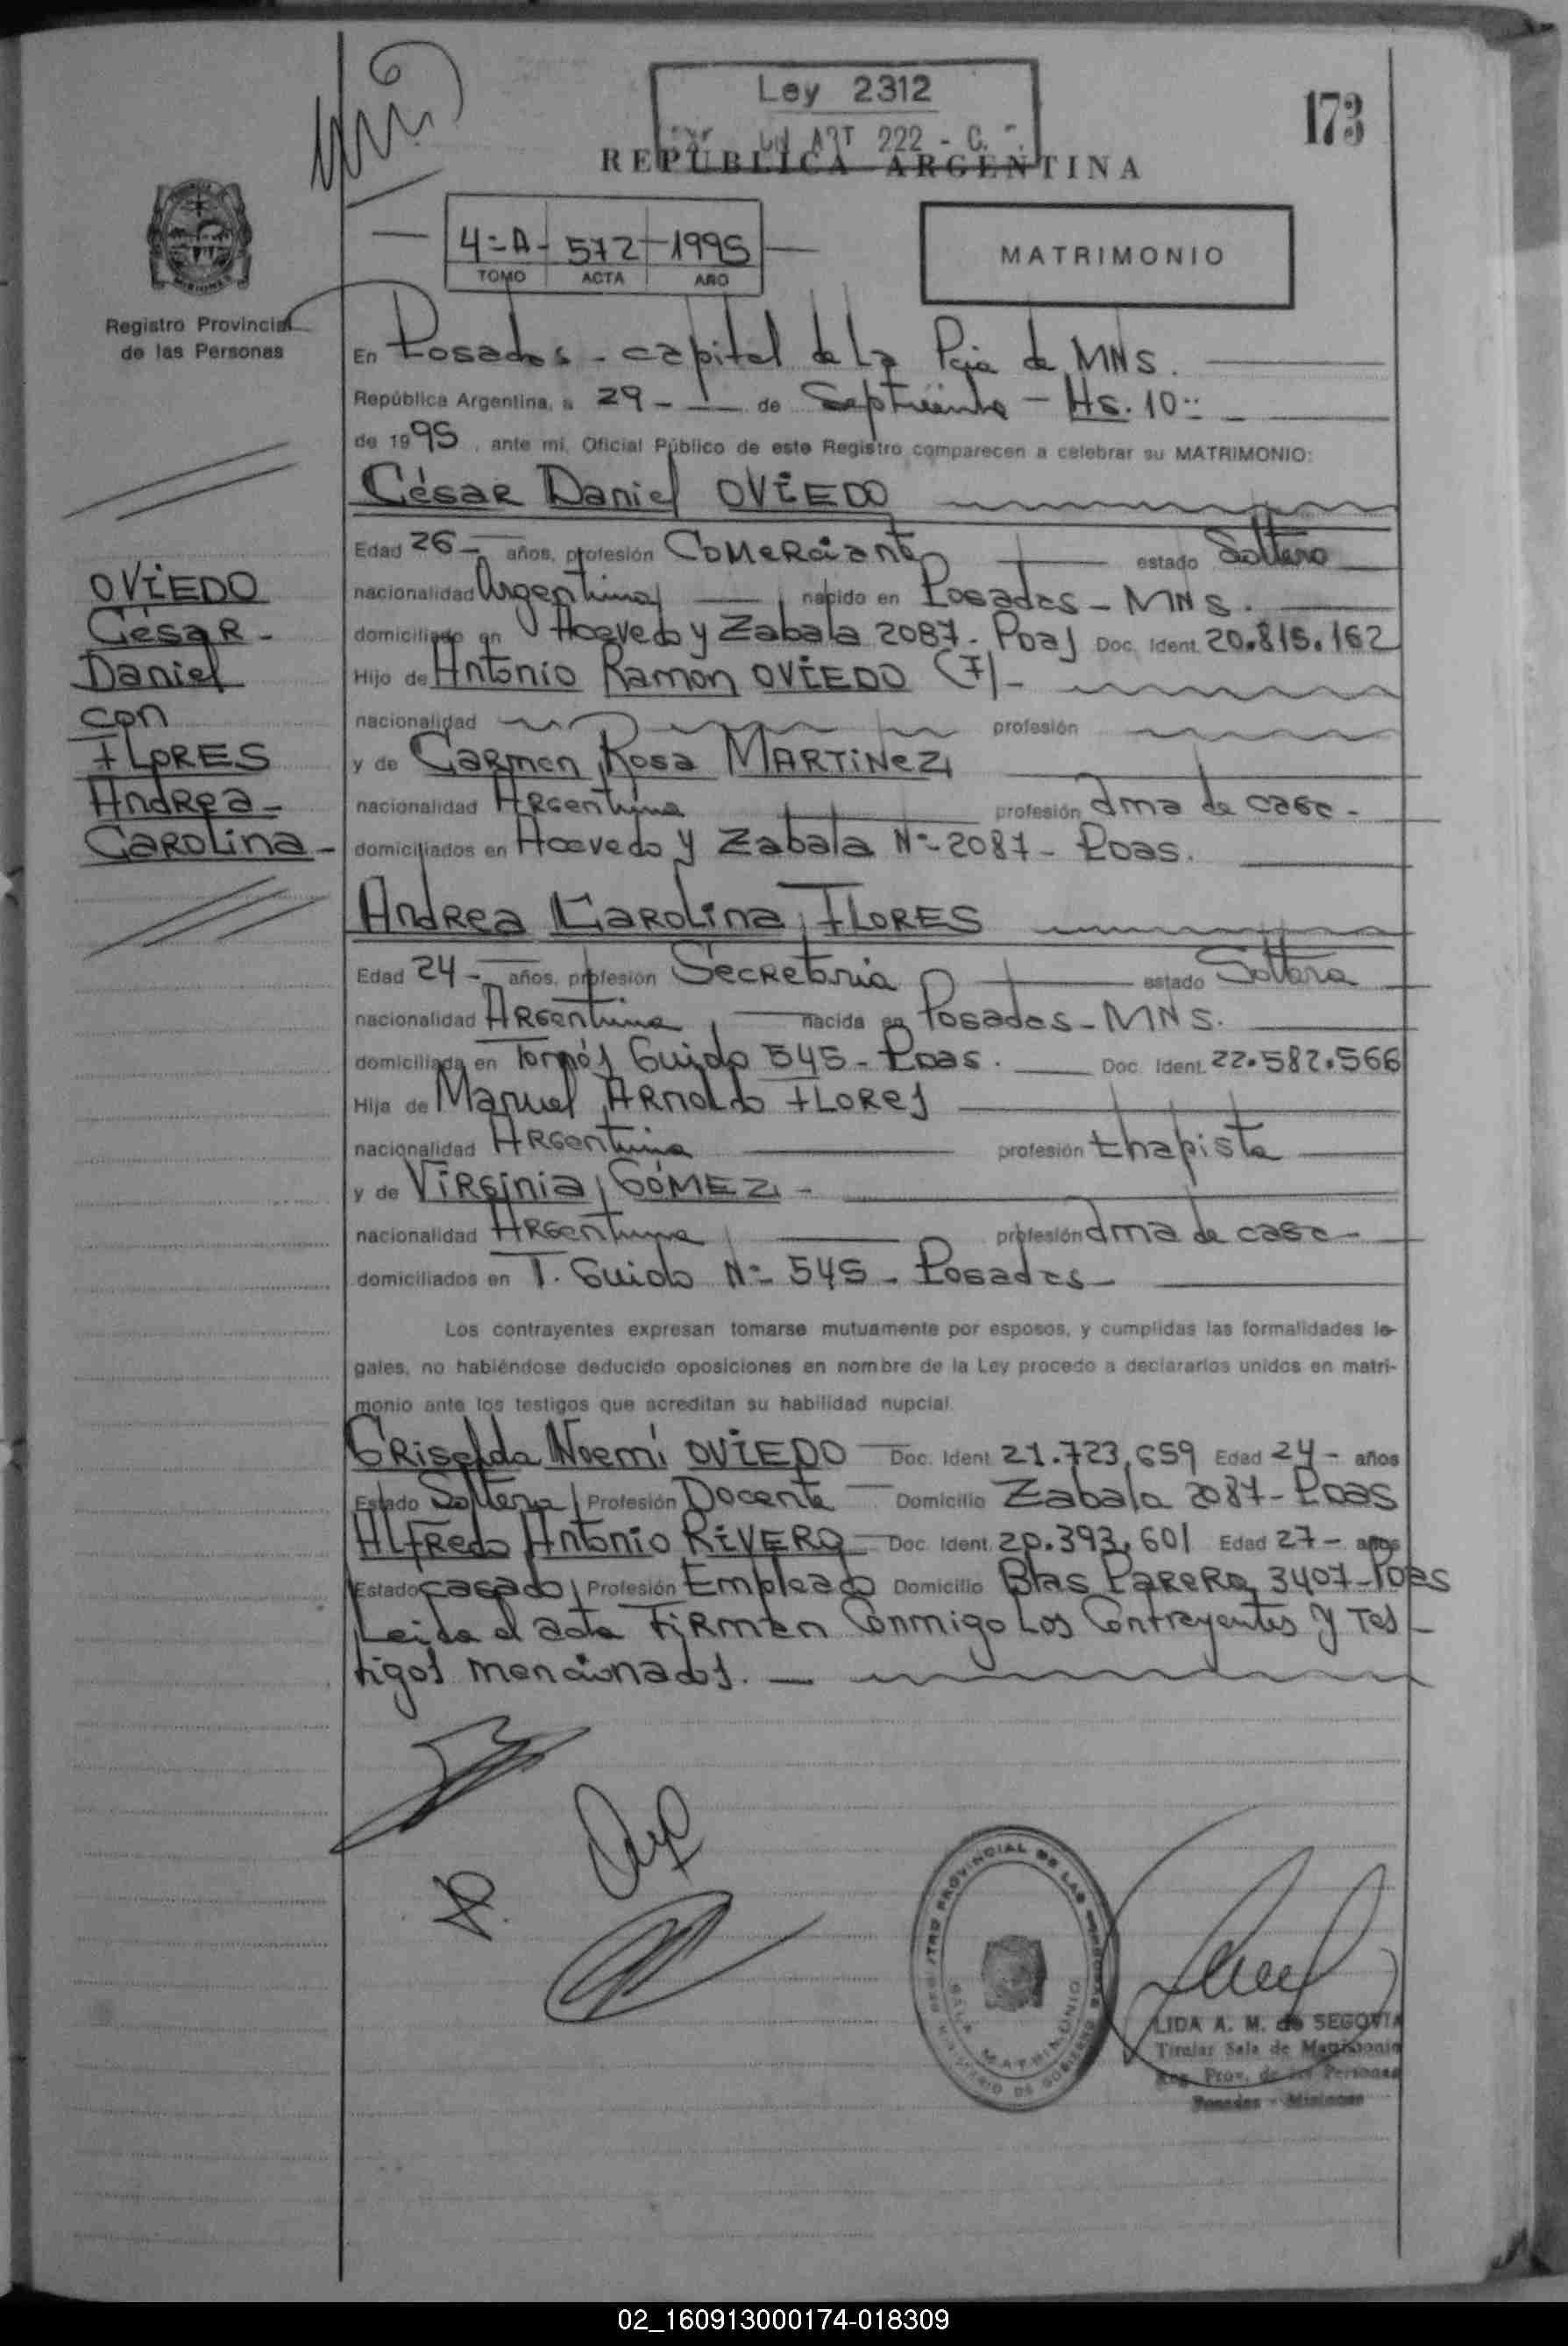 Ley 2312
ART 222 - C.
173
REPUBLICA ARGENTINA
4-A- 572-1995
TOMO ACTA AÑO
MATRIMONIO
Registro Provincial
de las Personas
En Posadas - capital de la Pcia de MNS.
República Argentina, a 29 - de Septiembre - Hs. 10:
de 1995, ante mi, Oficial Público de este Registro comparecen a celebrar su MATRIMONIO:
César Daniel OVIEDO
Edad 26 - años, profesión Comerciante estado Soltero
nacionalidad Argentina nacido en Posadas - MNS.
domiciliado en Acevedo y Zabala 2087 - Poas Doc. Ident. 20.815.162
Hijo de Antonio Ramón OVIEDO (F) -
nacionalidad profesión
y de Carmen Rosa MARTINEZ
nacionalidad Argentina profesión ama de casa -
domiciliados en Acevedo y Zabala N- 2087 - Poas.
OVIEDO
César -
Daniel
con
FLORES
Andrea -
Carolina -
Andrea Carolina FLORES
Edad 24 - años, profesión Secretaria estado Soltera
nacionalidad Argentina nacida en Posadas - MNS.
domiciliada en Tomás Guido 545 - Poas. Doc. Ident. 22.582.566
Hija de Manuel Arnoldo FLORES
nacionalidad Argentina profesión chapista
y de Virginia GÓMEZ -
nacionalidad Argentina profesión ama de casa -
domiciliados en T. Guido N- 545 - Posadas -
Los contrayentes expresan tomarse mutuamente por esposos, y cumplidas las formalidades le-
gales, no habiéndose deducido oposiciones en nombre de la Ley procedo a declararlos unidos en matri-
monio ante los testigos que acreditan su habilidad nupcial
Griselda Noemí OVIEDO Doc. Ident 21.723.659 Edad 24 - años
Estado Soltera Profesión Docente Domicilio Zabala 2087 - Poas
Alfredo Antonio RIVERO Doc. Ident. 20.393.601 Edad 27 - años
Estado casado Profesión Empleado Domicilio Blas Parera 3407 - Poas
Leida el acta Firman Conmigo Los Contrayentes y Tes-
tigos mencionados. -
REGISTRO PROVINCIAL DE LAS PERSONAS
SALA MATRIMONIO
MINISTERIO DE GOBIERNO
LIDA A. M. de SEGOVIA
Titular Sala de Matrimonio
Reg. Prov. de las Personas
Posadas - Misiones
02_160913000174-018309